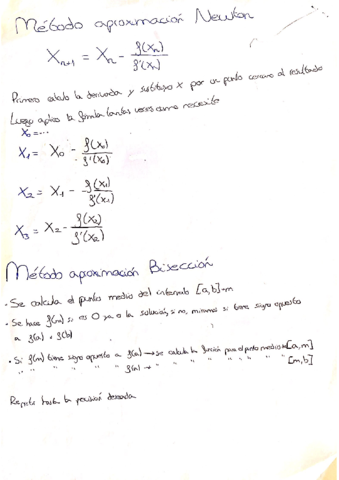 Método aproximación Newton
Xn+1 = Xn - f(Xn) / f'(Xn)
Primero calculo la derivada y sustituyo X por un punto cercano al resultado
Luego aplico la fórmula tantas veces como necesite
X0 = ...
X1 = X0 - f(X0) / f'(X0)
X2 = X1 - f(X1) / f'(X1)
X3 = X2 - f(X2) / f'(X2)
Método aproximación Bisección
· Se calcula el punto medio del intervalo [a,b]=m
· Se hace f(m) si es 0 ya a la solución, si no, miramos si tiene signo opuesto
a f(a) o f(b)
· Si f(m) tiene signo opuesto a f(a) → se calcula la función para el punto medio de [a,m]
" " " " " f(b) → " " " " " " " [m,b]
Repite hasta la precisión deseada